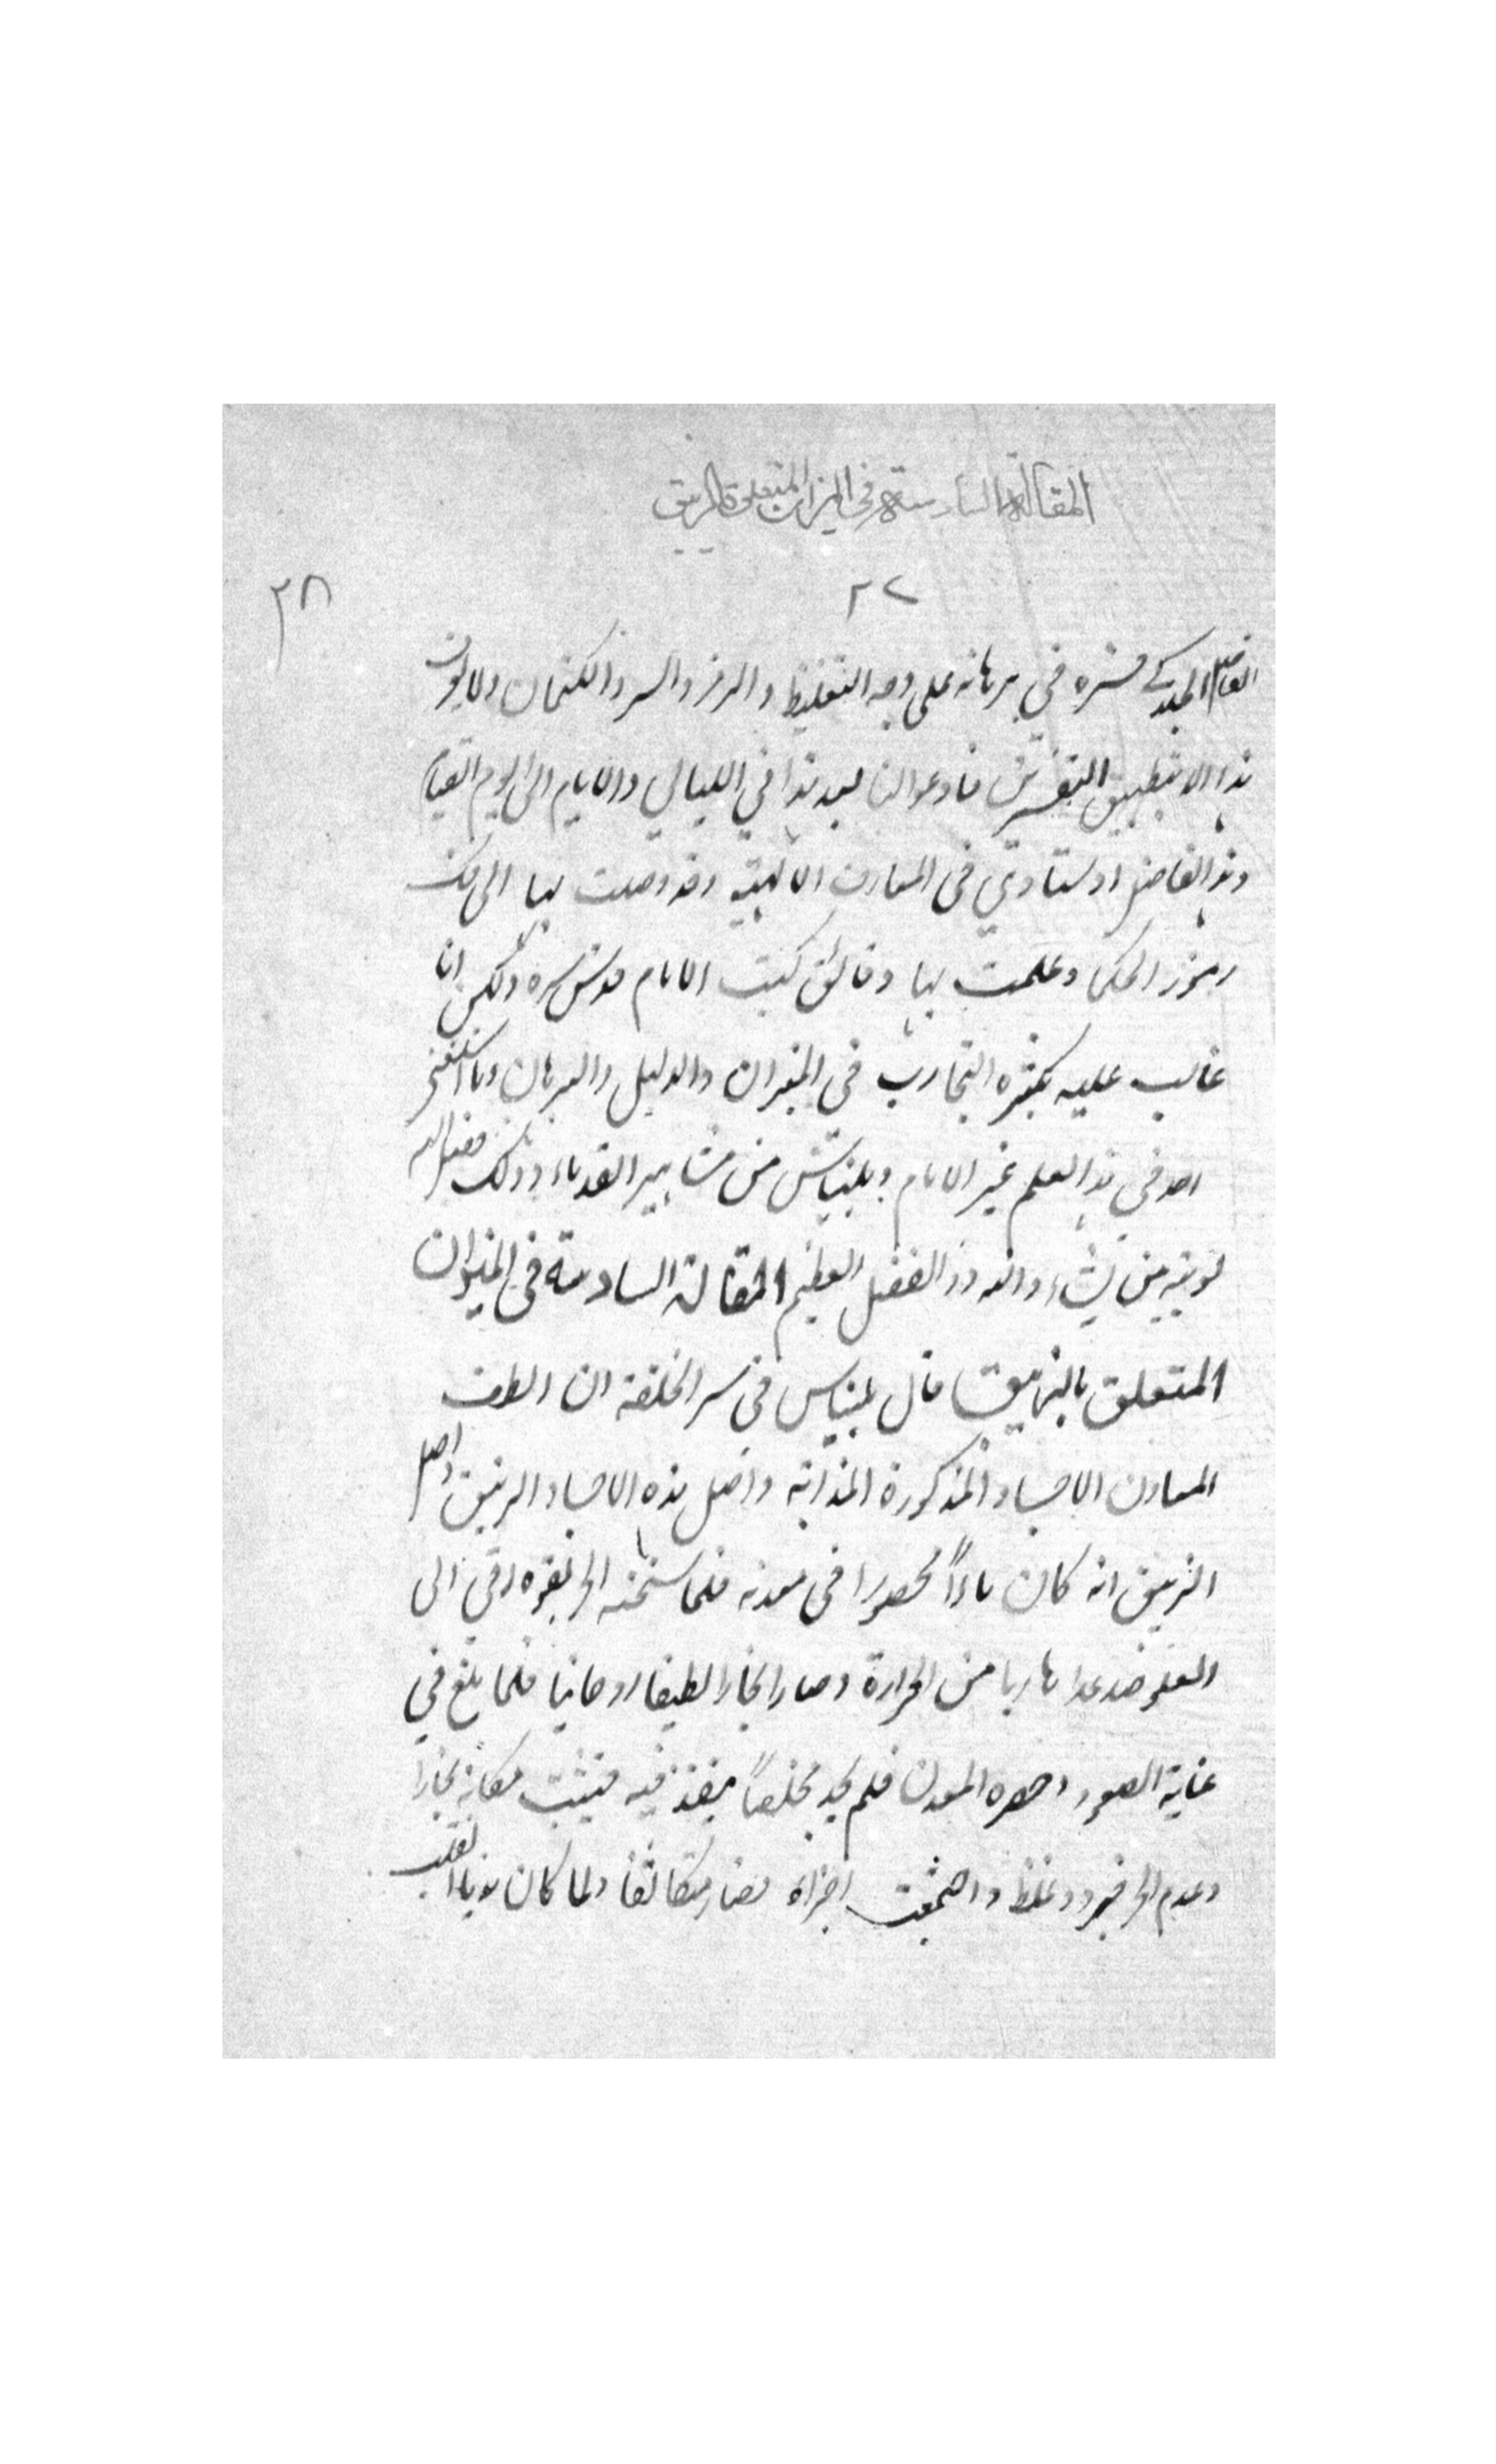 المقالة السادسة في الميزان المتعلق بالزيبق
٢٢
٣٨
الفاضل الجلدكي قسره في برهانه على وجه التغليظ والرمز والسر والكتمان ولا يكون
هذا الا بتطبيق فادعوا لنا بعد هذا في الليالي والايام والى يوم القيام
وهذا الفاضل اوستادي في المعارف الالهية وقد وصلت بها الى فك
رموز الحكما وعلمت بها دقائق كتب الامام قدس سره ولكن انا
غالب عليه بكثره التجارب في الميزان والدليل والبرهان وما
احد في هذا العلم غير الامام وبليناس من مشاهير القدماء وذلك فضل الله
يوتيه من يشاء والله ذو الفضل العظيم المقالة السادسة في الميزان
المتعلق بالزيبق قال بليناس في سر الخلقة ان الطف
المعادن الاجساد المذكورة المذابة واصل هذه الاجساد الزيبق واصل
الزيبق انه كان ماءاً محصورا في معدنه فلما سخنه الحر بقوه رقى الى
العلو صاعدا هاربا من الحرارة وصار بخارا لطيفا روحانيا فلما بلغ في
غاية الصعود وحصره المعدن فلم يجد مخلصاً ينفذ فيه فيثبت مكانه بخارا
وعدم الحر فبرد وغلظ واجتمعت اجزاه فصار متكاثفا ولما كان هويا انقلب